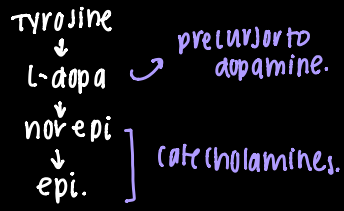 Tyrosine
L-dopa
precursor to
dopamine.
norepi
epi.
catecholamines.